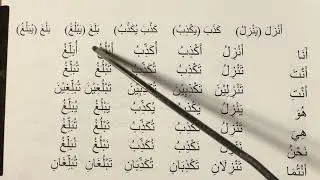 أَنْزَلَ (يُنْزِلُ) كَذَبَ (يَكْذِبُ) كَذَّبَ (يُكَذِّبُ) بَلَغَ (يَبْلُغُ) بَلَّغَ (يُبَلِّغُ)
أَنَا أُنْزِلُ أَكْذِبُ أُكَذِّبُ أُبَلِّغُ
أَنْتَ تُنْزِلُ تَكْذِبُ تُكَذِّبُ تَبْلُغُ تُبَلِّغُ
أَنْتِ تُنْزِلِيْنَ تَكْذِبِيْنَ تُكَذِّبِيْنَ تَبْلُغِيْنَ تُبَلِّغِيْنَ
هُوَ يُنْزِلُ يَكْذِبُ يُكَذِّبُ يَبْلُغُ يُبَلِّغُ
هِيَ تُنْزِلُ تَكْذِبُ تُكَذِّبُ تَبْلُغُ تُبَلِّغُ
نَحْنُ نُنْزِلُ نَكْذِبُ نُكَذِّبُ نَبْلُغُ نُبَلِّغُ
أَنْتُمَا تُنْزِلَانِ تَكْذِبَانِ تُكَذِّبَانِ تَبْلُغَانِ تُبَلِّغَانِ